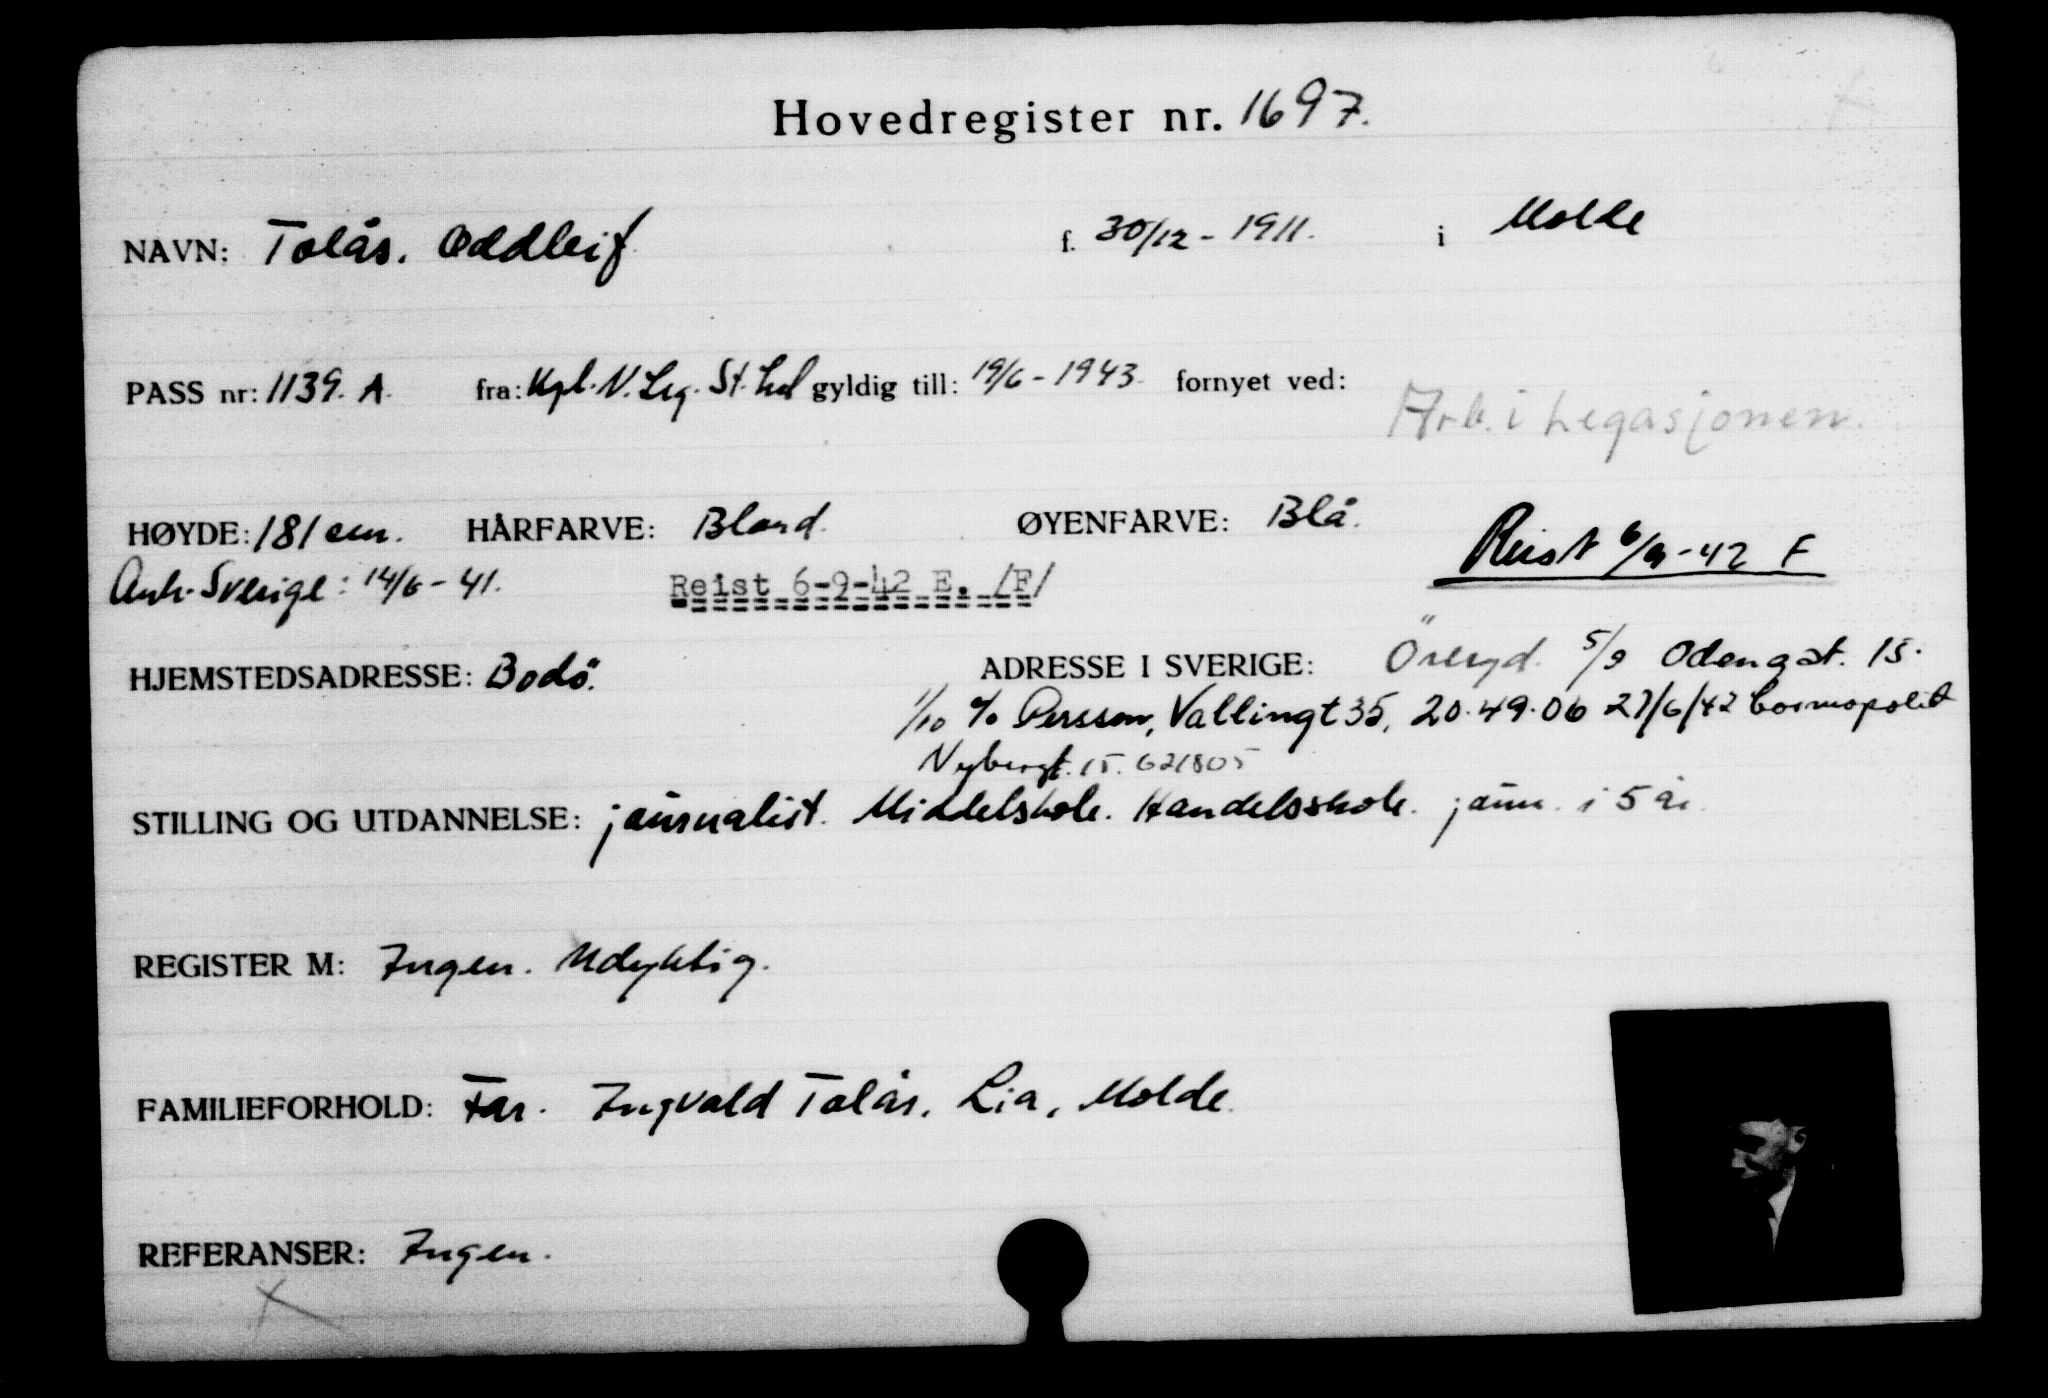 Hovedregister nr. 1697.
NAVN: Tolås. Oddleif f. 30/12 - 1911. i Molde
PASS nr: 1139. A. fra: Kgl. N. Leg. St. hol gyldig till: 19/6 - 1943. fornyet ved:
Arb. i Legasjonen.
HØYDE: 181 cm. HÅRFARVE: Blond. ØYENFARVE: Blå.
Reist 6/9 - 42 F
Ank. Sverige: 14/6 - 41. Reist 6-9-42 E. /F/
HJEMSTEDSADRESSE: Bodö. ADRESSE I SVERIGE: Öreryd. 5/9 Odengat. 15.
1/10 c/o Persson, Vallingt 35, 20.49.06 27/6/42 Cosmopolit
Nybergt. 15. 621805
STILLING OG UTDANNELSE: journalist. Middelskole. Handelsskole. journ. i 5 år.
REGISTER M: Ingen. Udyktig.
FAMILIEFORHOLD: Far. Ingvald Tolås. Lia, Molde.
REFERANSER: Ingen.